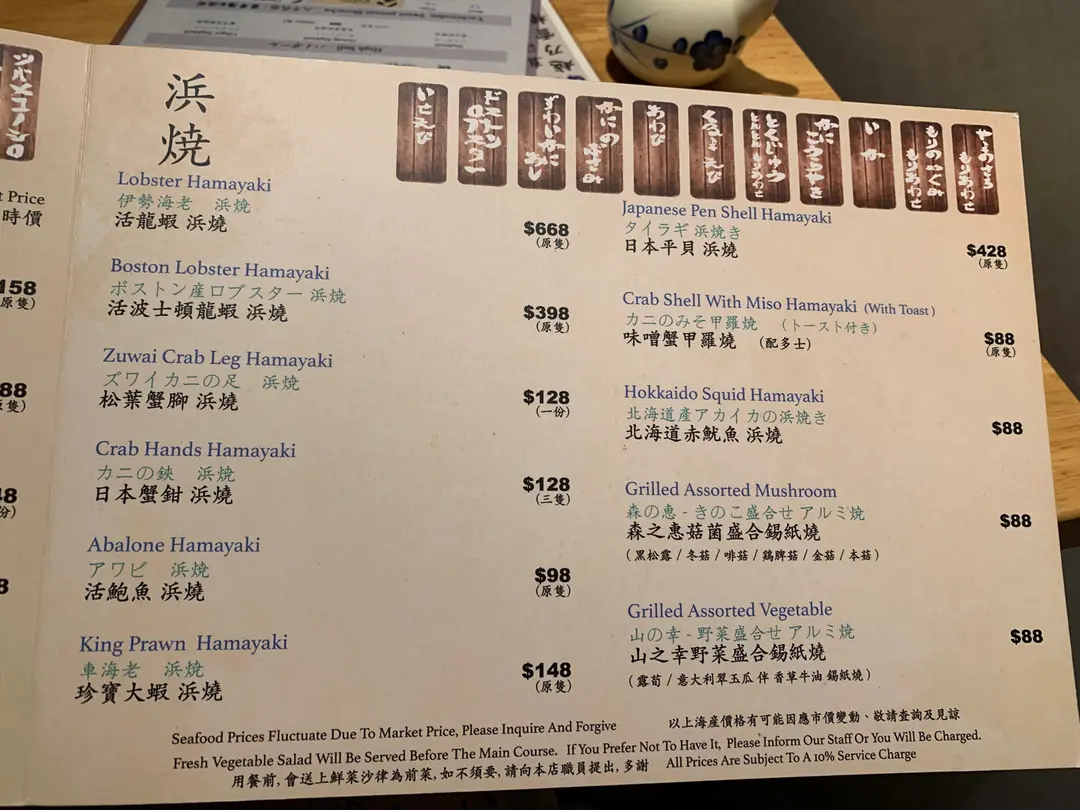 浜
焼
いせえび
あわび
いか
Lobster Hamayaki
伊勢海老 浜焼
活龍蝦 浜燒
$668
(原隻)
Boston Lobster Hamayaki
ボストン産ロブスター 浜焼
活波士頓龍蝦 浜燒
$398
(原隻)
Zuwai Crab Leg Hamayaki
ズワイカニの足 浜焼
松葉蟹腳 浜燒
$128
(一份)
Crab Hands Hamayaki
カニの鋏 浜焼
日本蟹鉗 浜燒
$128
(三隻)
Abalone Hamayaki
アワビ 浜焼
活鮑魚 浜燒
$98
(原隻)
King Prawn Hamayaki
車海老 浜焼
珍寶大蝦 浜燒
$148
(原隻)
Japanese Pen Shell Hamayaki
タイラギ 浜焼き
日本平貝 浜燒
$428
(原隻)
Crab Shell With Miso Hamayaki (With Toast)
カニのみそ甲羅焼 (トースト付き)
味噌蟹甲羅燒 (配多士)
$88
(原隻)
Hokkaido Squid Hamayaki
北海道産アカイカの浜焼き
北海道赤魷魚 浜燒
$88
Grilled Assorted Mushroom
森の恵 - きのこ盛合せ アルミ焼
森之惠菇菌盛合錫紙燒
(黑松露 / 冬菇 / 啡菇 / 鶏脾菇 / 金菇 / 本菇)
$88
Grilled Assorted Vegetable
山の幸 - 野菜盛合せ アルミ焼
山之幸野菜盛合錫紙燒
(露荀 / 意大利翠玉瓜 伴 香草牛油 錫紙燒)
$88
Seafood Prices Fluctuate Due To Market Price, Please Inquire And Forgive
以上海産價格有可能因應市價變動、敬請查詢及見諒
Fresh Vegetable Salad Will Be Served Before The Main Course. If You Prefer Not To Have It, Please Inform Our Staff Or You Will Be Charged.
用餐前, 會送上鮮菜沙律為前菜, 如不須要, 請向本店職員提出, 多謝
All Prices Are Subject To A 10% Service Charge
Price
時價
158
原隻)
88
隻)